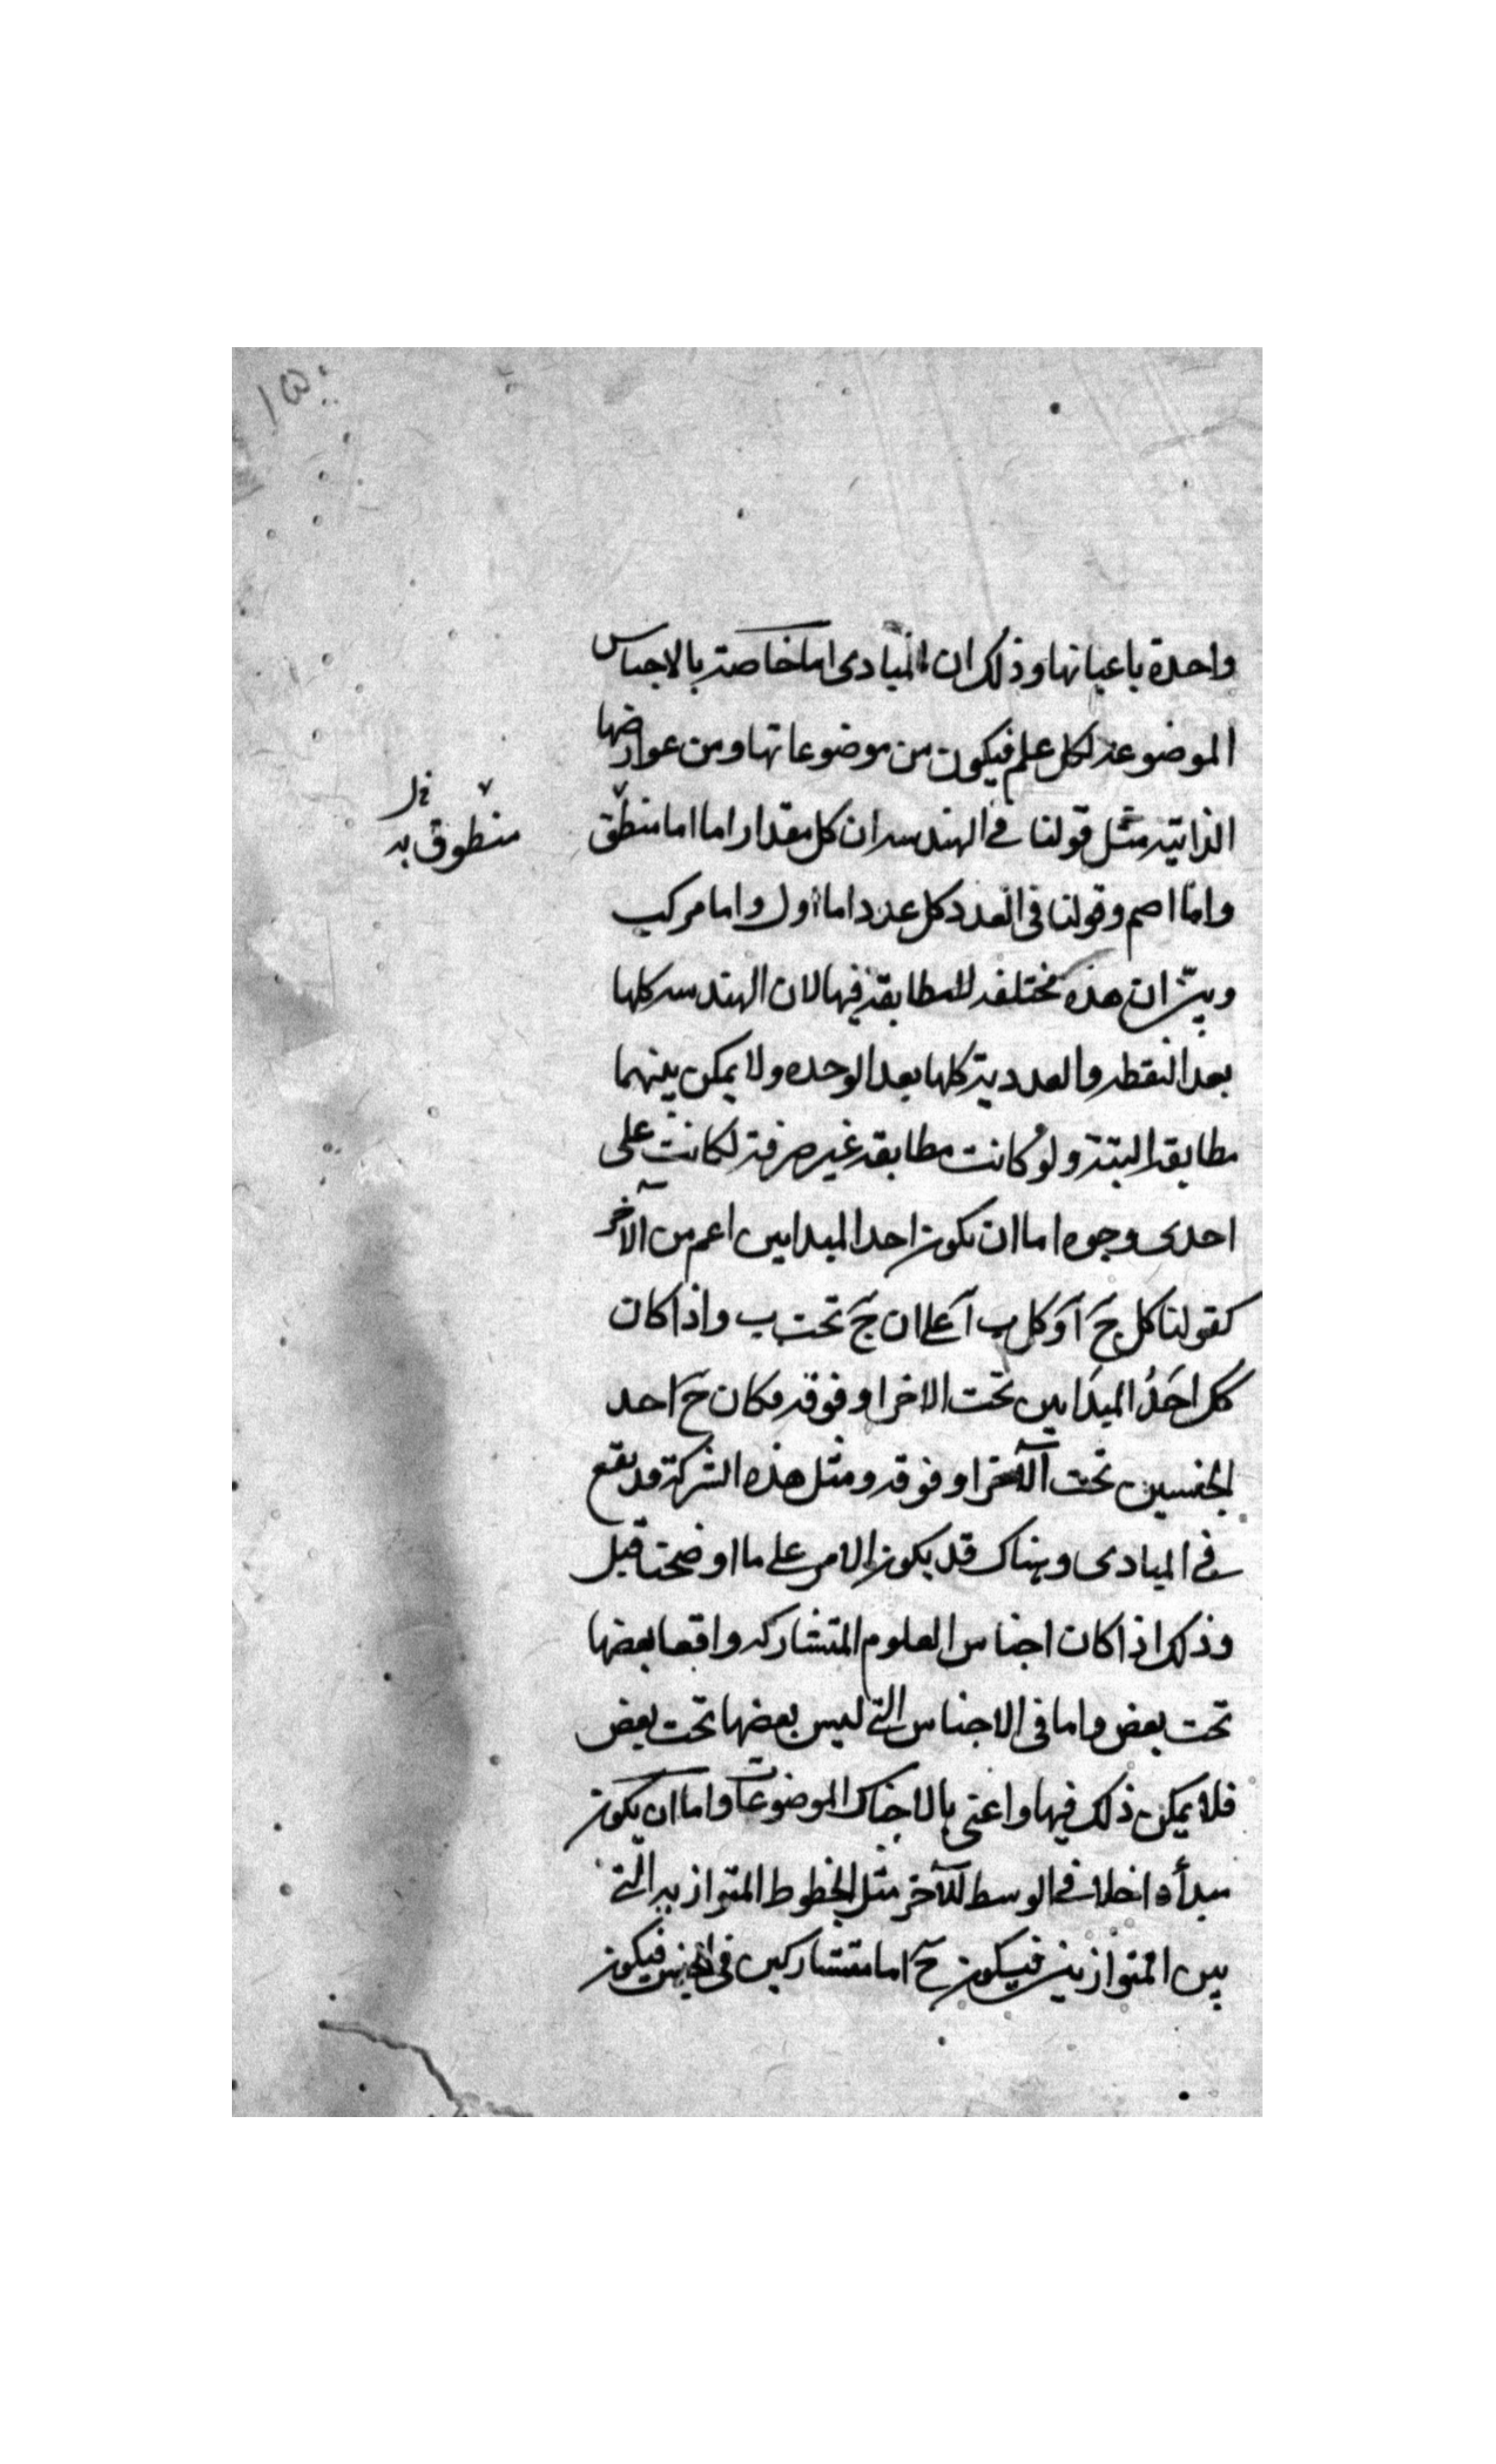 ١٥٠
واحدة باعيانها وذلك ان المبادى اما خاصة بالاجناس
الموضوعة لكل علم فيكون من موضوعاتها ومن عوارضها
الذاتية مثل قولنا فى الهندسه ان كل مقدار اما اما منطق
منطوق به
واما اصم وقولنا فى العدد كل عدد اما اول واما مركب
وبين ان هذه مختلفه لا مطابقة فيها لان الهندسه كلها
بعد النقطه والعددية كلها بعد الوحده ولا يمكن بينهما
مطابقة البتة ولو كانت مطابقة غير صرفة لكانت على
احدى وجوه اما ان يكون احد المبداين اعم من الآخر
كقولنا كل ج آ وكل ب آ على ان ج تحت ب واذا كان
كل احد المبداين تحت الاخر او فوقه فكان ح احد
الجنسين تحت الآخر او فوقه ومثل هذه الشركة قد يقع
فى المبادى وهناك قد يكون الامر على ما اوضحنا قبل
وذلك اذا كان اجناس العلوم المتشاركه واقعا بعضها
تحت بعض واما فى الاجناس التى ليس بعضها تحت بعض
فلا يمكن ذلك فيها واعنى بالاجناس الموضوعات واما ان يكون
مبدأ داخلا فى الوسط للآخر مثل الخطوط المتوازية التى
بين المتوازيين فيكون ح اما متشاركين فى الجنس فيكون